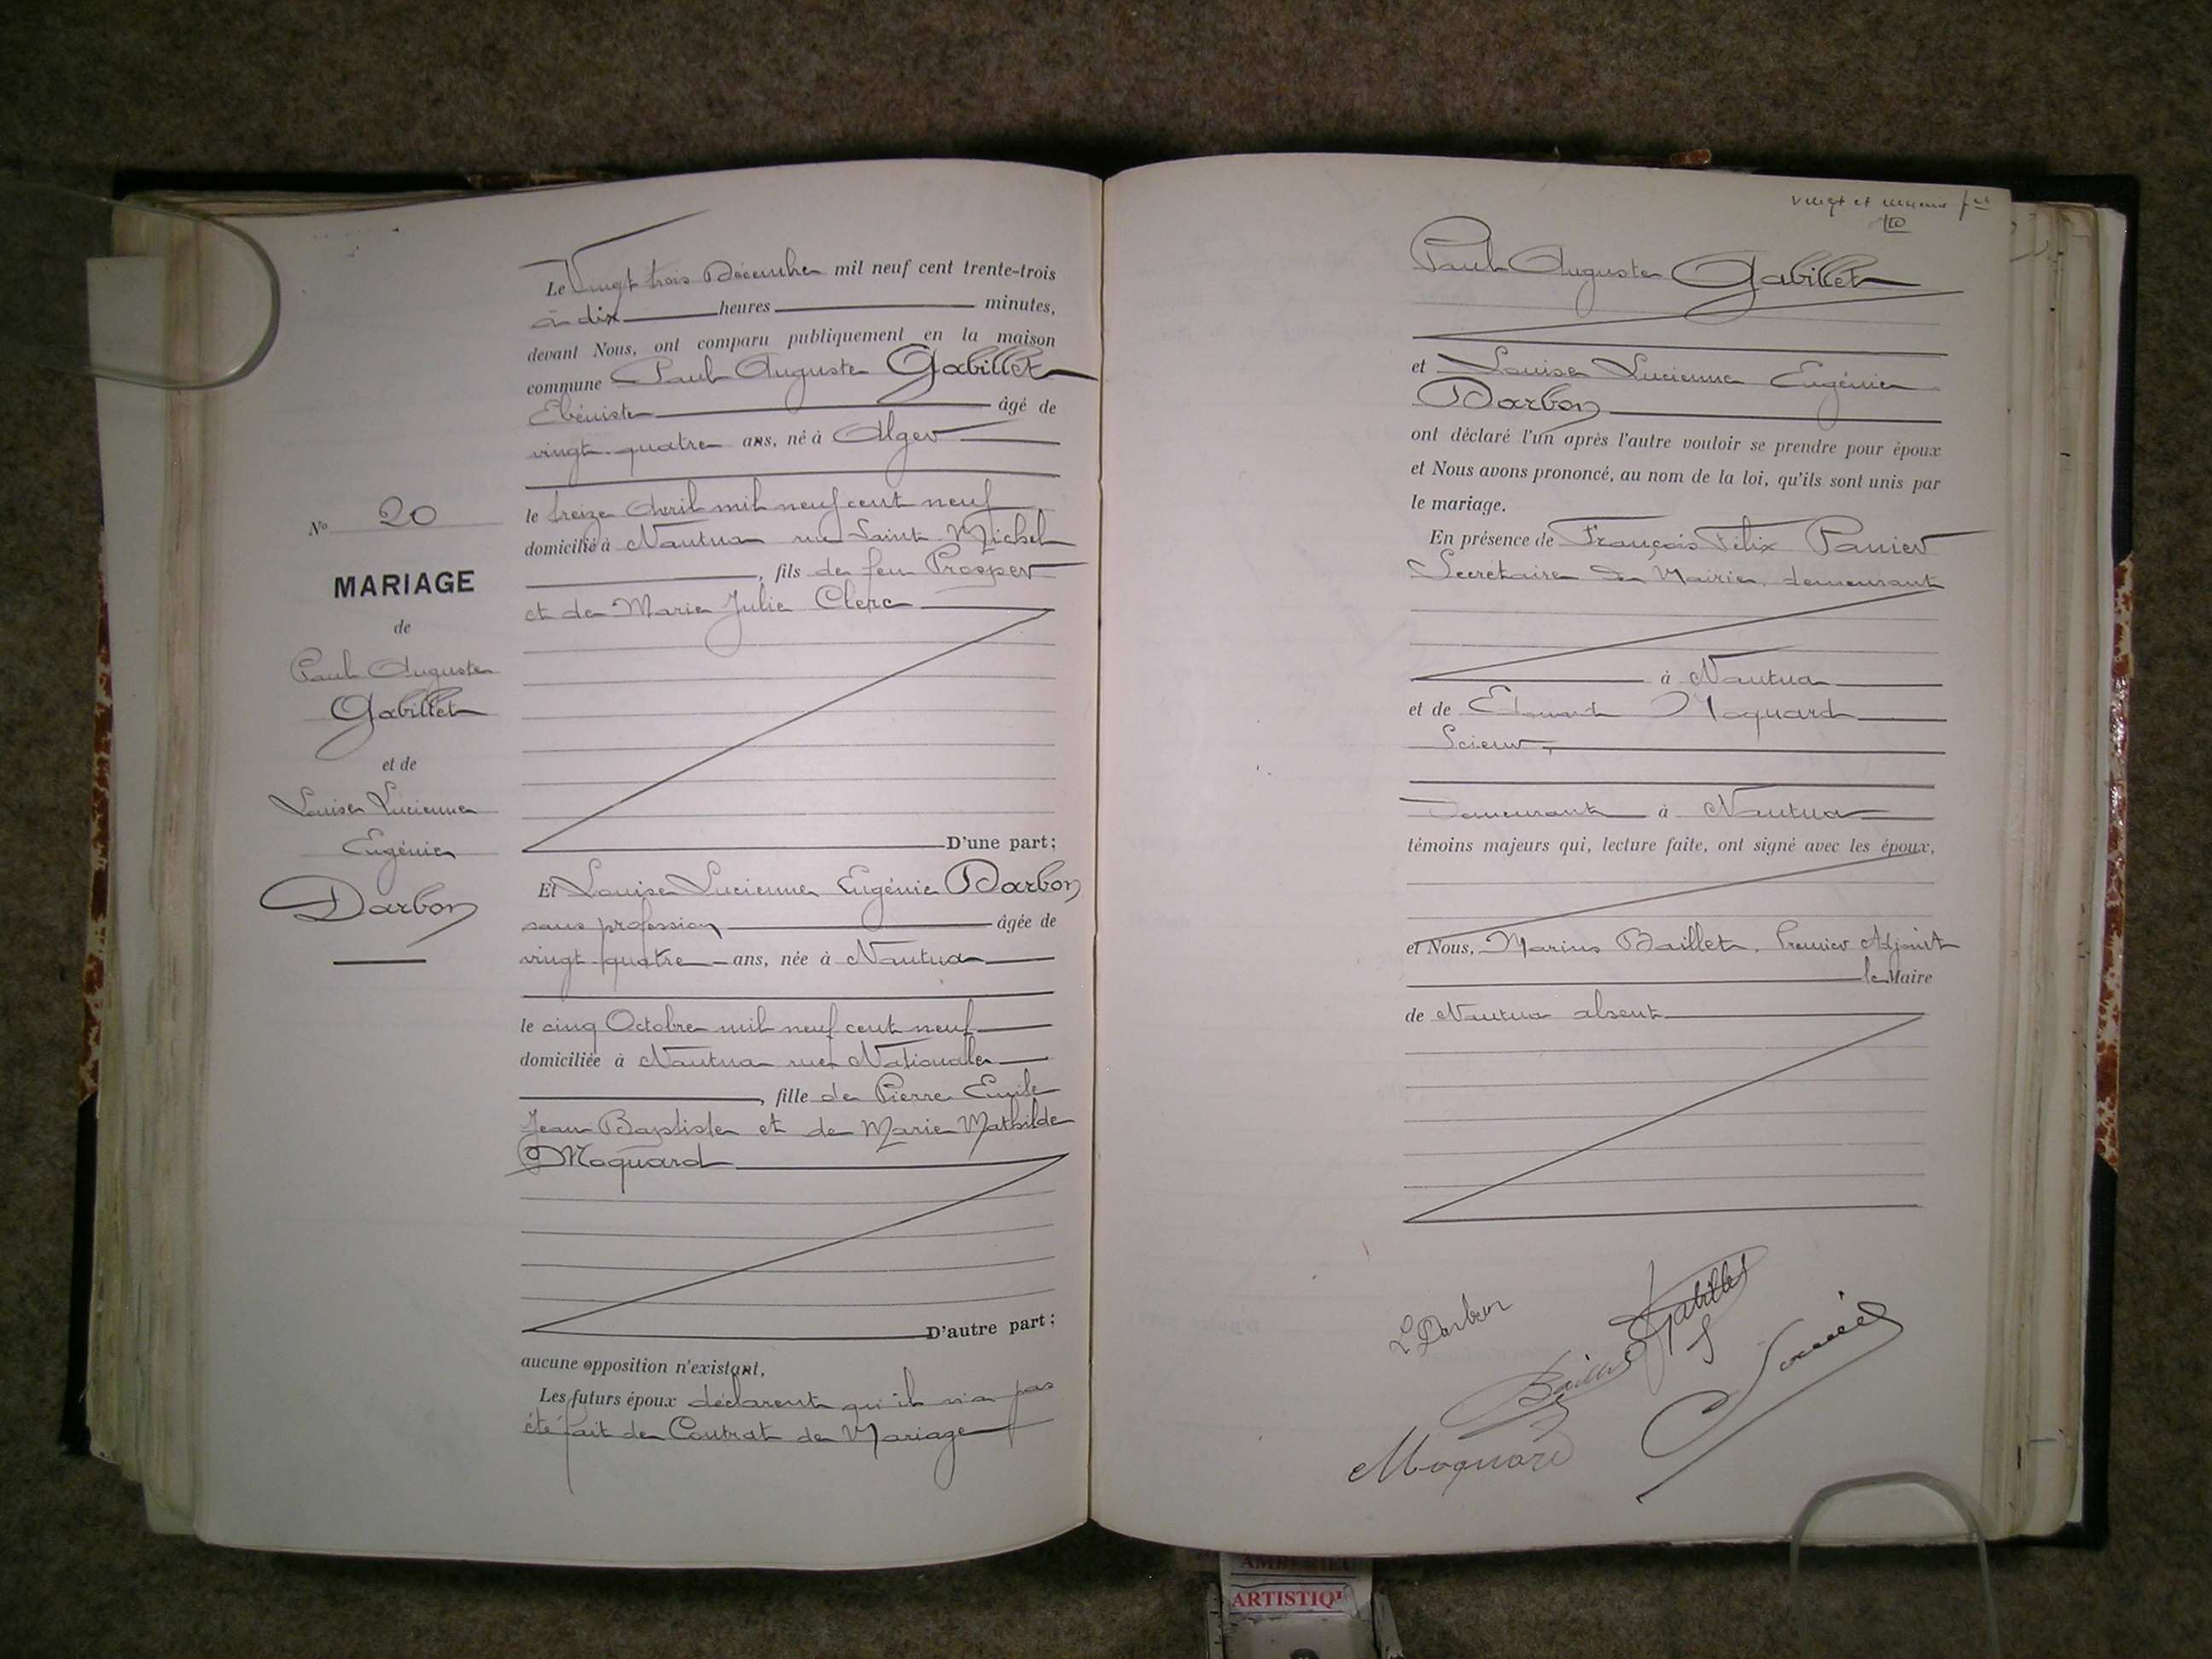 Le Vingt trois Décembre mil neuf cent trente-trois
à dix heures minutes,
devant Nous, ont comparu publiquement en la maison
commune Paul Auguste Gabillet
Ebéniste âgé de
vingt-quatre ans, né à Alger
le treize Avril mil neuf cent neuf
domicilié à Nantua rue Saint Michel
, fils de feu Prosper
et de Marie Julie Clerc
D'une part;
Et Louise Lucienne Eugénie Darbon
sans profession âgée de
vingt-quatre ans, née à Nantua
le cinq Octobre mil neuf cent neuf
domiciliée à Nantua rue Nationale
, fille de Pierre Emile
Jean Baptiste et de Marie Mathilde
Moquard
D'autre part;
aucune opposition n'existant,
Les futurs époux déclarent qu'il n'a pas
été fait de Contrat de Mariage
No 20
MARIAGE
de
Paul Auguste
Gabillet
et de
Louise Lucienne
Eugénie
Darbon
vingt et
Paul Auguste Gabillet
et Louise Lucienne Eugénie
Darbon
ont déclaré l'un après l'autre vouloir se prendre pour époux
et Nous avons prononcé, au nom de la loi, qu'ils sont unis par
le mariage.
En présence de François Félix Panier
Secrétaire de Mairie, demeurant
à Nantua
et de Edouard Moquard
Scieur,
Demeurant à Nantua
témoins majeurs qui, lecture faite, ont signé avec les époux,
et Nous, Marius Baillet, Premier Adjoint
le Maire
de Nantua absent
L Darbon
Gabillet
Baillet
Moquard
ARTISTIQ